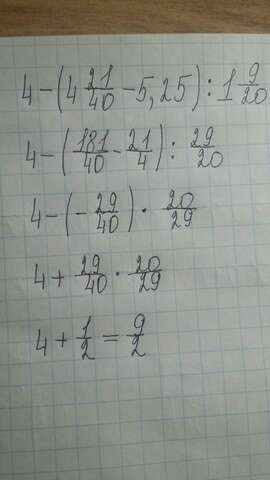 4-(4 21/40 - 5,25) : 1 9/20
4-(181/40 - 21/4) : 29/20
4-(-29/40) · 20/29
4 + 29/40 · 20/29
4 + 1/2 = 9/2